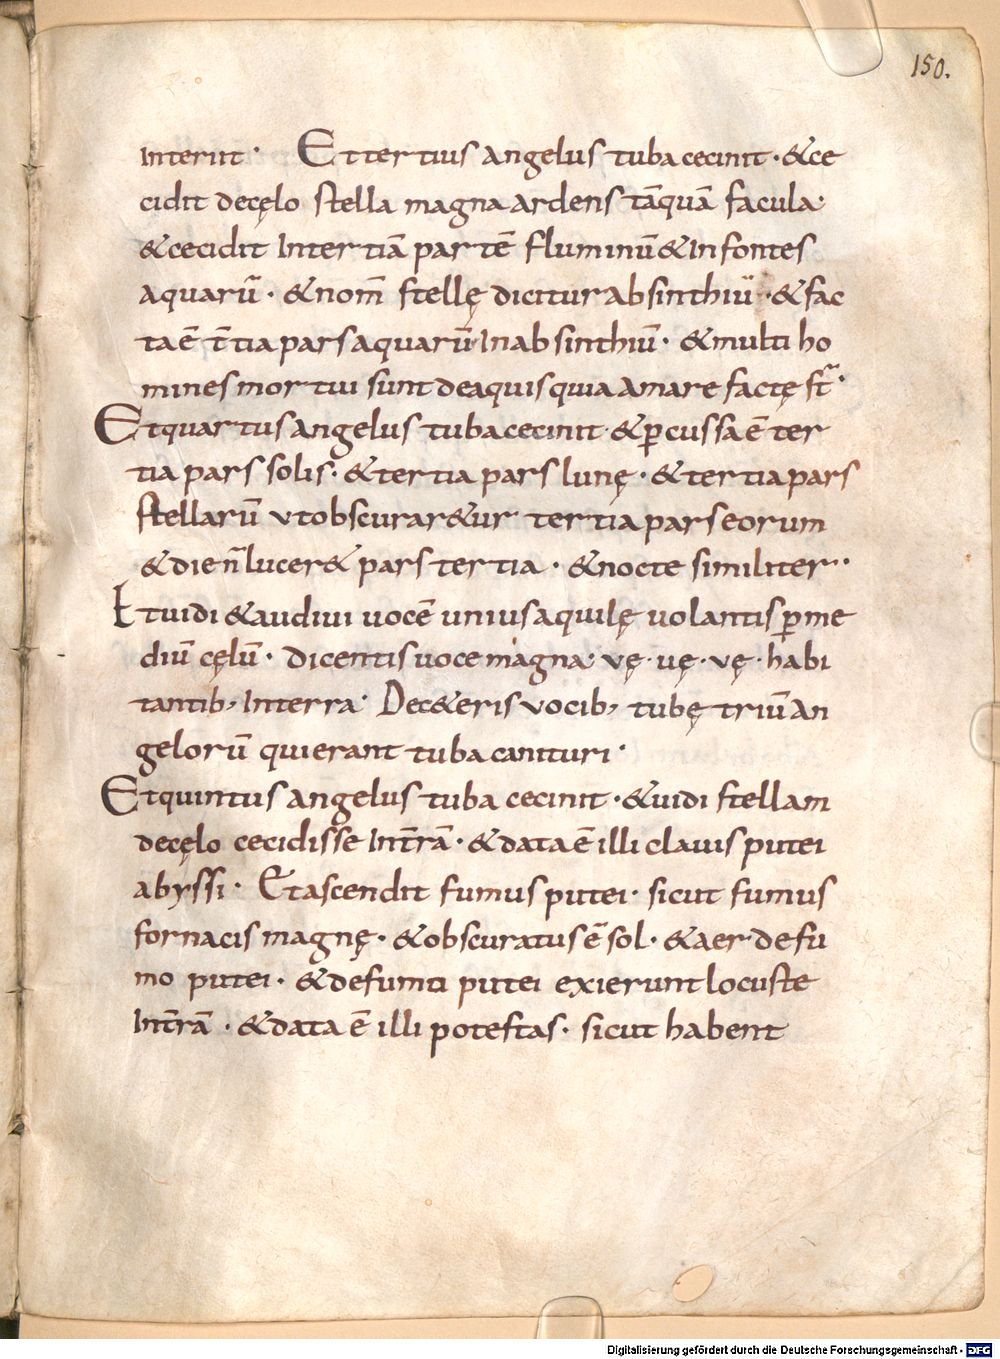 150.
Interiit· Et tertius angelus tuba cecinit·&ce
cidit decęlo stella magna ardens tāquā facula·
&cecidit Intertiā partē fluminū&Infontes
aquarū·&nom̄ stellę dicitur absinthiū·&fac
ta ē t̄tia pars aquarū Inabsinthiū·&multi ho
mines mortui sunt deaquis quia amare factę st̄·
Et quartus angelus tuba cecinit·&ꝑcussa ē ter
tia pars solis·&tertia pars lunę·&tertia pars
stellarū vt obscurar&ur tertia pars eorum
&die n̄ lucer& pars tertia·&nocte similiter··
Et uidi &audiui uocē unius aquilę uolantis ꝑme
diū cęlū· dicentis uoce magna· vę·uę·vę·habi
tantib; Interra· Dec&eris vocib; tubę triū an
gelorū qui erant tuba canituri·
Et quintus angelus tuba cecinit·&uidi stellam
decęlo cecidisse Int̄rā·&data ē illi clauis putei
abyssi· Et ascendit fumus putei· sicut fumus
fornacis magnę·&obscuratus ē sol·&aer defu
mo putei·&defumi putei exierunt locuste
Int̄rā·&data ē illi potestas· sicut habent
Digitalisierung gefördert durch die Deutsche Forschungsgemeinschaft - DFG